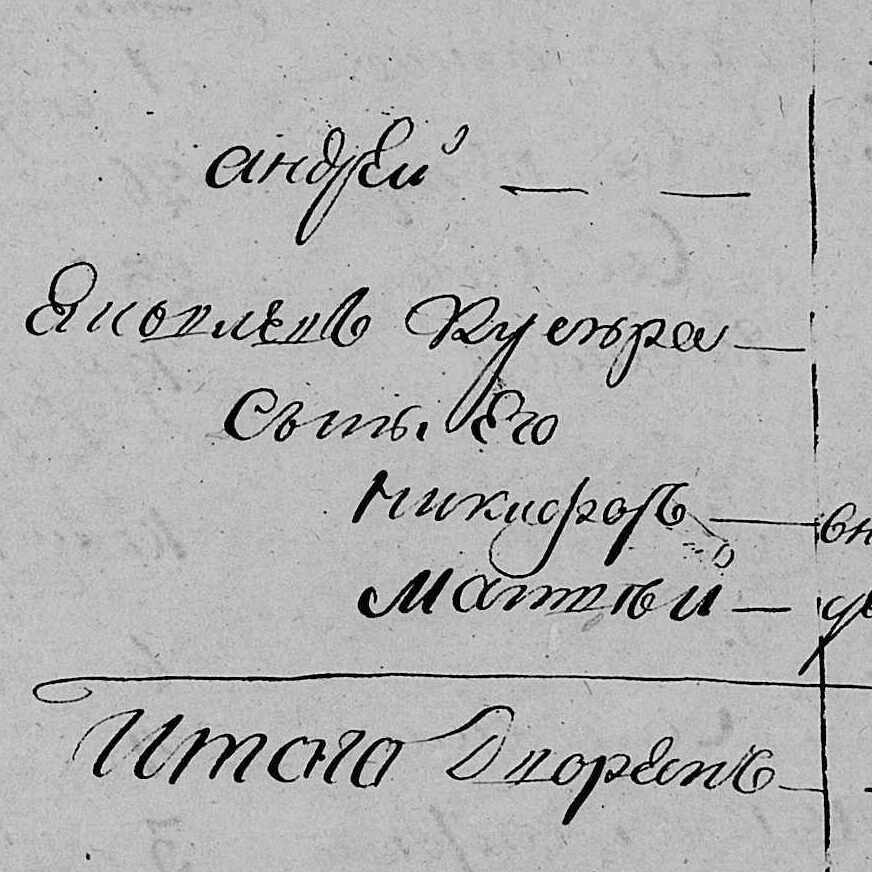 андрей
Яковлевъ Кусира
Сыны Его
Никифоръ вн
Матвѣй
Итого Дворянъ